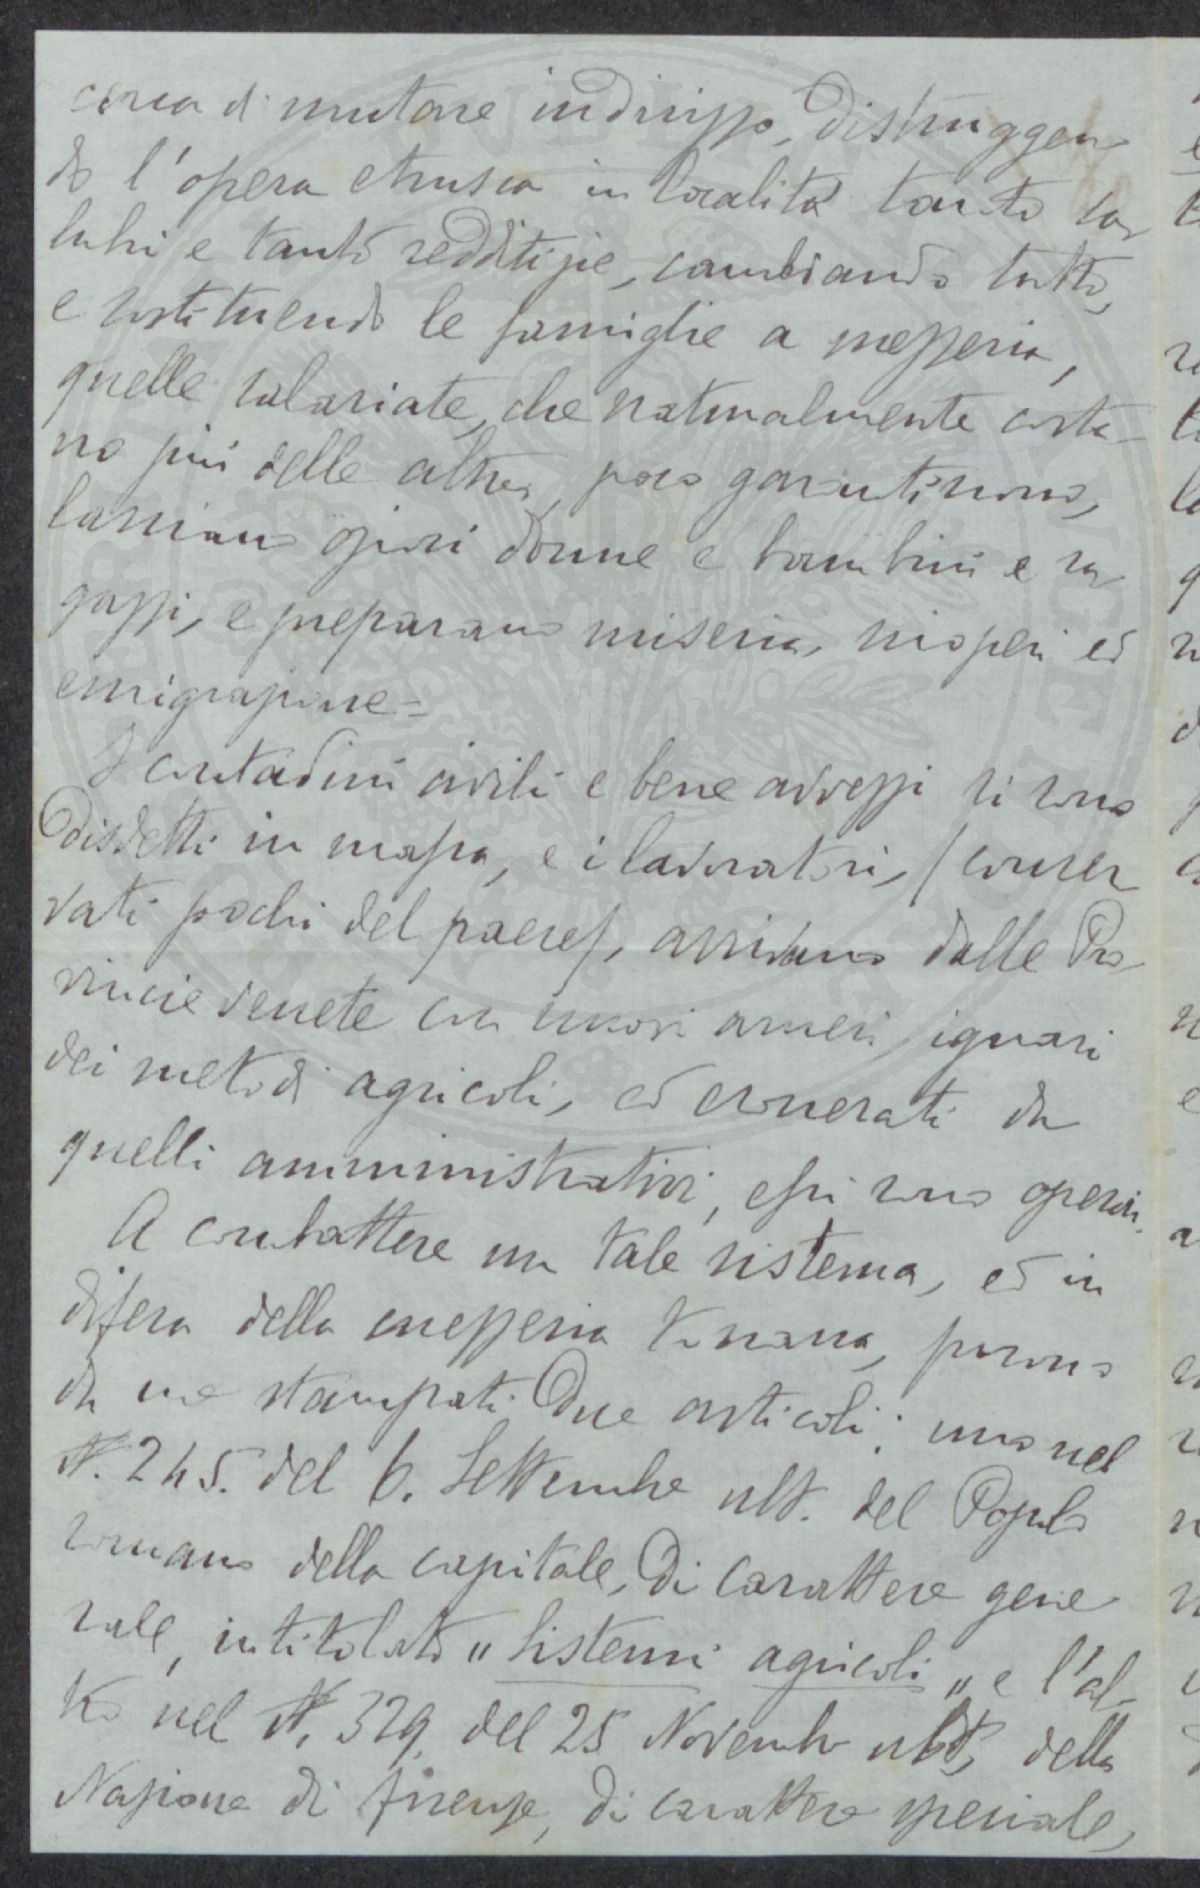 cerca di mutare indirizzo, distruggen-
do l'opera etrusca in località tanto sa-
lubri e tanto redditizie, cambiando tutto,
e sostituendo le famiglie a mezzeria,
quelle salariate, che naturalmente costa-
no più delle altre, poco garantiscono,
lasciano oziosi donne e bambini e ra-
gazzi, e preparano miseria, scioperi ed
emigrazione =
I contadini civili e bene avvezzi si sono
disdetti in massa, e i lavoratori, (conser
vati pochi del paese), arrivano dalle Pro-
vincie venete con nuovi arnesi, ignari
dei metodi agricoli, ed esonerati da
quelli amministrativi, essi sono operai.
A combattere un tale sistema, ed in
difesa della mezzeria toscana, furono
da me stampati due articoli: uno nel
N. 245. del 6. Settembre ult. del Popolo
romano della capitale, di carattere gene
rale, intitolato „ Sistemi agricoli „ e l'al-
tro nel N. 329. del 25 Novembre ult. della
Nazione di Firenze, di carattere speciale,